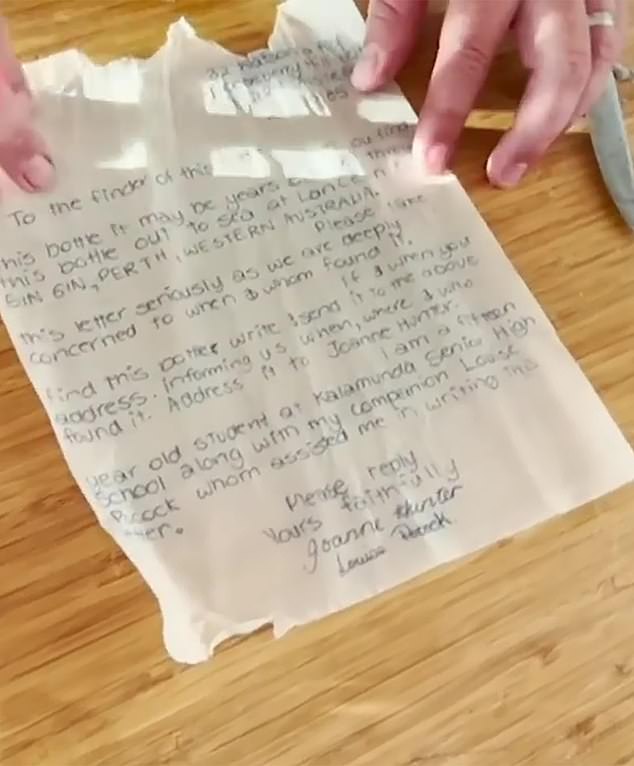 To the finder of this
this bottle it may be years
this bottle out to sea at
GIN GIN, PERTH, WESTERN AUSTRALIA.
Please take
this letter seriously as we are deeply
concerned to when & whom found it.
If & when you
find this bottle write & send it to the above
address. Informing us when, where & who
found it. Address it to Joanne Hunter.
I am a fifteen
year old student at Kalamunda Senior High
School along with my companion Louise
Pocock whom assisted me in writing this
Please reply
Yours faithfully
Joanne Hunter
Louise Pocock